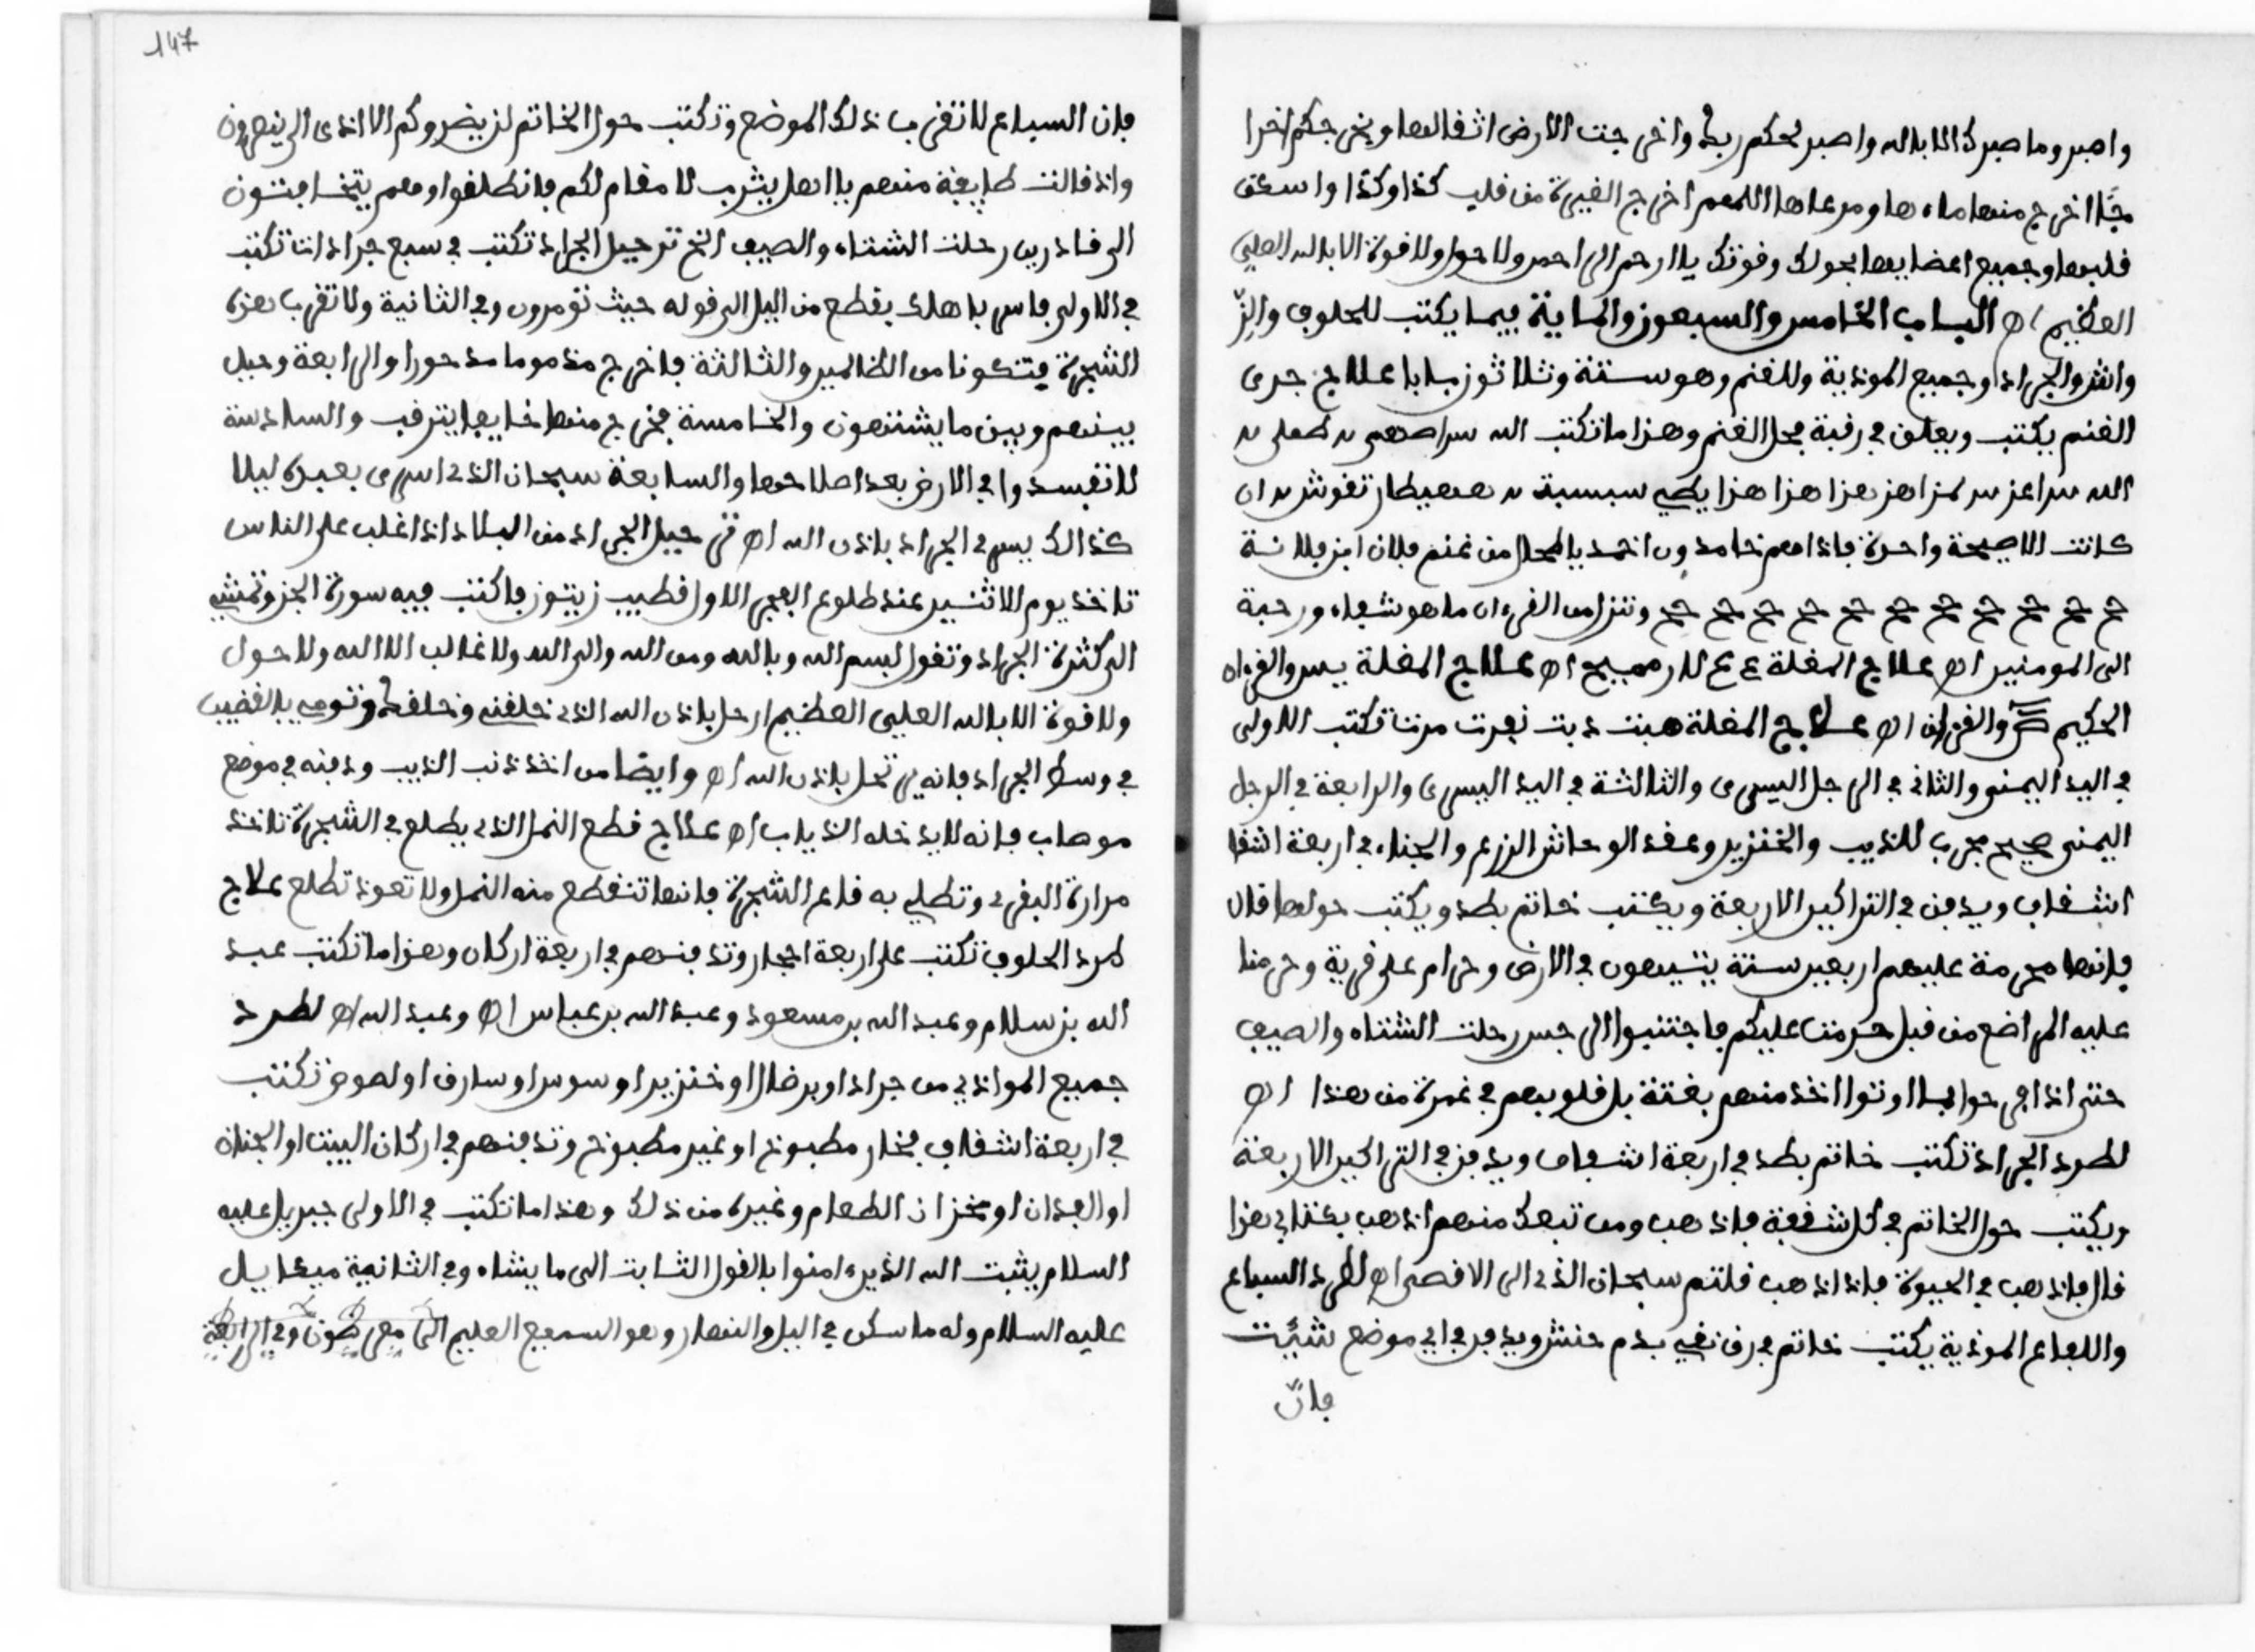 واصبر وما صبرك الا بالله واصبر لحكم ربك واخرجت الارض اثقالها ويخرجكم اخرا
جا اخرج منها ماءها ومرعاها اللهم اخرج الغيرة من قلب كذا وكذا واسعى
قلبها وجميع اعضايها بحولك وقوتك يا ارحم الراحمين ولا حول ولا قوة الا بالله العلي
العظيم اهـ الباب الخامس والسبعون والماية فيما يكتب للحلوف والز
والجراد وجميع الموذية وللغنم وهو ستة وثلاثون بابا علاج جدرى
الغنم يكتب ويعلق في رقبة فحل الغنم وهذا ما تكتب الله
الله هزا هزا هزا
كانت الا صيحة واحدة فاذا هم خامدون اخمد يا من غنم فلان ابن فلانة
وننزل من القرءان ما هو شفاء ورحمة
الى المومنين اهـ علاج المغلة اهـ علاج المغلة يس والقرءان
الحكيم ص والقرءان اهـ علاج المغلة تكتب الاولى
في اليد اليمنى والثاني في الرجل اليسرى والثالثة في اليد اليسرى والرابعة في الرجل
اليمنى صحيح مجرب للذيب والخنزير وعقد الوحاش الزرع والجناء في اربعة اشقا
اشقاف ويدفن في التراكين الاربعة ويكتب خاتم بطد ويكتب حولها قال
فانها محرمة عليهم اربعين سنة يتيهون في الارض وحرام على قرية وحرمنا
عليه المراضع من قبل حرمت عليكم فاجتنبوا الرجس رحلت الشتاء والصيف
حتى اذا فرحوا بما اوتوا اخذ منهم بغتة بل قلوبهم في غمرة من هذا اهـ
لطرد الجراد تكتب خاتم بطد في اربعة اشقاف ويدفن في التراكين الاربعة
ويكتب حول الخاتم في كل شقفة فاذهب ومن تبعك منهم اذهب بكتابي هذا
قال فاذهب في الحيوة فاذا اذهب قلتم سبحان الذى الى الاقصى اهـ لطرد السباع
واللفاع الموذية يكتب خاتم في رق نقي بدم حنش ويدفن في اي موضع شيت
فان
147
فان السباع لا تقرب ذلك الموضع وتكتب حول الخاتم لن يضروكم الا اذى الى ينصرون
واذ قالت طايفة منهم يا اهل يثرب لا مقام لكم فانطلقوا وهم يتخافتون
الى قادرين رحلت الشتاء والصيف الخ ترحيل الجراد تكتب في سبع جرادات تكتب
في الاولى فاسر باهلك بقطع من اليل الى قوله حيث تومرون وفي الثانية ولا تقربا هذه
الشجرة فتكونا من الظالمين والثالثة فاخرج مذموما مدحورا والرابعة وحيل
بينهم وبين ما يشتهون والخامسة فخرج منها خايفا يترقب والسادسة
لا تفسدوا في الارض بعد اصلاحها والسابعة سبحان الذى اسرى بعبده ليلا
كذالك يسرى الجراد باذن الله اهـ ترحيل الجراد من البلاد اذا غلب على الناس
تاخذ يوم الاثنين عند طلوع الفجر الاول قضيب زيتون فاكتب فيه سورة الجن وتمشي
الى كثرة الجراد وتقول بسم الله وبالله ومن الله والى الله ولا غالب الا الله ولا حول
ولا قوة الا بالله العلي العظيم ارحل باذن الله الذى خلقني وخلقك وتومي بالقضيب
في وسط الجراد فانه يرتحل باذن الله اهـ وايضا من اخذ ذنب الذيب ودفنه في موضع
موهاب فانه لا يدخله الذياب اهـ علاج قطع النمل الذى يطلع في الشجرة تاخذ
مرارة البقرى وتطلي به قاع الشجرة فانها تنقطع منه النمل ولا تعود تطلع علاج
لمرد الحلوف تكتب على اربعة احجار وتدفنهم في اربعة اركان وهذا ما تكتب عبد
الله بن سلام وعبد الله بن مسعود وعبد الله بن عباس اهـ وعبد الله اهـ لطرد
جميع المواذي من جراد او برطال او خنزير او سوس او سارق او لصوص تكتب
في اربعة اشقاف فخار مطبوخ او غير مطبوخ وتدفنهم في اركان البيت او الجناة
او الفدان او مخزان الطعام وغيره من ذلك وهذا ما تكتب في الاولى جبريل عليه
السلام يثبت الله الذين ءامنوا بالقول الثابت الى ما يشاء وفي الثانية ميكاييل
عليه السلام وله ما سكن في اليل والنهار وهو السميع العليم وفي الرابعة